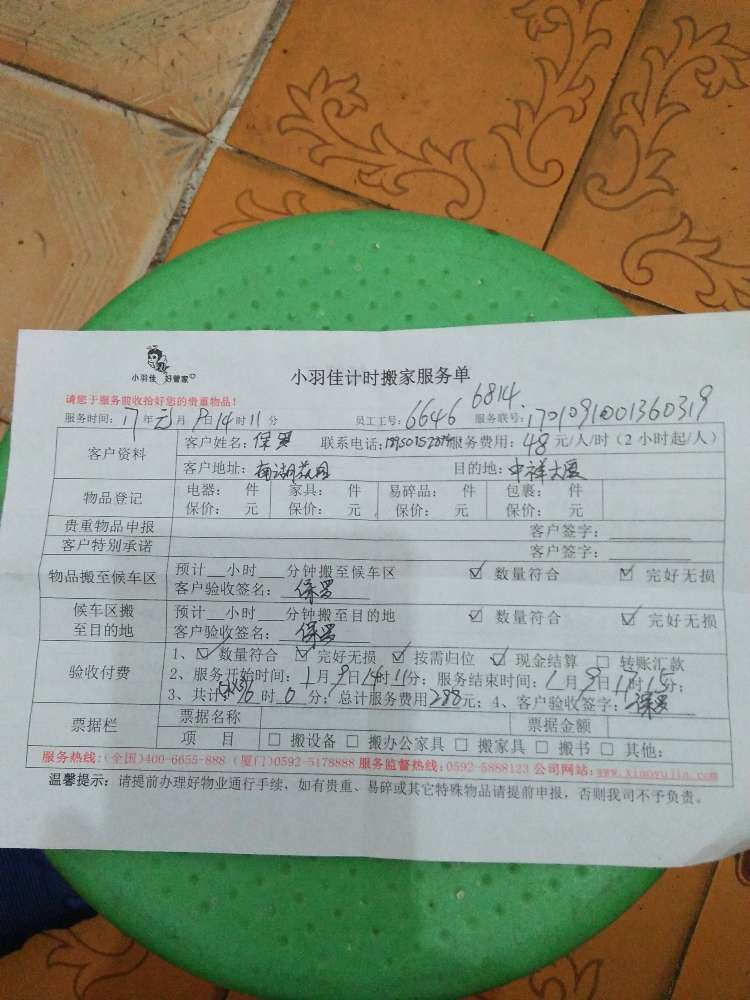 小羽佳 好管家
小羽佳计时搬家服务单
请您于服务前收拾好您的贵重物品!
6814
服务时间: 17 年 元 月 9 日 14 时 11 分 员工工号: 6646 服务联号: 1701091001360319
客户资料 客户姓名: 保罗 联系电话: 服务费用: 48 元/人/时 (2 小时起/人)
客户地址: 南湖花园 目的地: 中祥大厦
物品登记 电器: 件 家具: 件 易碎品: 件 包裹: 件
保价: 元 保价: 元 保价: 元 保价: 元
贵重物品申报 客户签字:
客户特别承诺 客户签字:
物品搬至候车区 预计 小时 分钟搬至候车区 ☑ 数量符合 ☑ 完好无损
客户验收签名: 保罗
候车区搬至目的地 预计 小时 分钟搬至目的地 ☑ 数量符合 ☑ 完好无损
客户验收签名: 保罗
验收付费 1、☑ 数量符合 ☑ 完好无损 ☑ 按需归位 ☑ 现金结算 □ 转账汇款
2、服务开始时间: 1 月 9 日 14 时 11 分; 服务结束时间: 1 月 9 日 时 分;
3、共计 时 0 分; 总计服务费用 288 元; 4、客户验收签字: 保罗
票据栏 票据名称 票据金额
项 目 □ 搬设备 □ 搬办公家具 □ 搬家具 □ 搬书 □ 其他:
服务热线: (全国)400-6655-888 (厦门)0592-5178888 服务监督热线: 0592-5888123 公司网站: www.xiaoyujia.com
温馨提示: 请提前办理好物业通行手续, 如有贵重、易碎或其它特殊物品请提前申报, 否则我司不予负责。